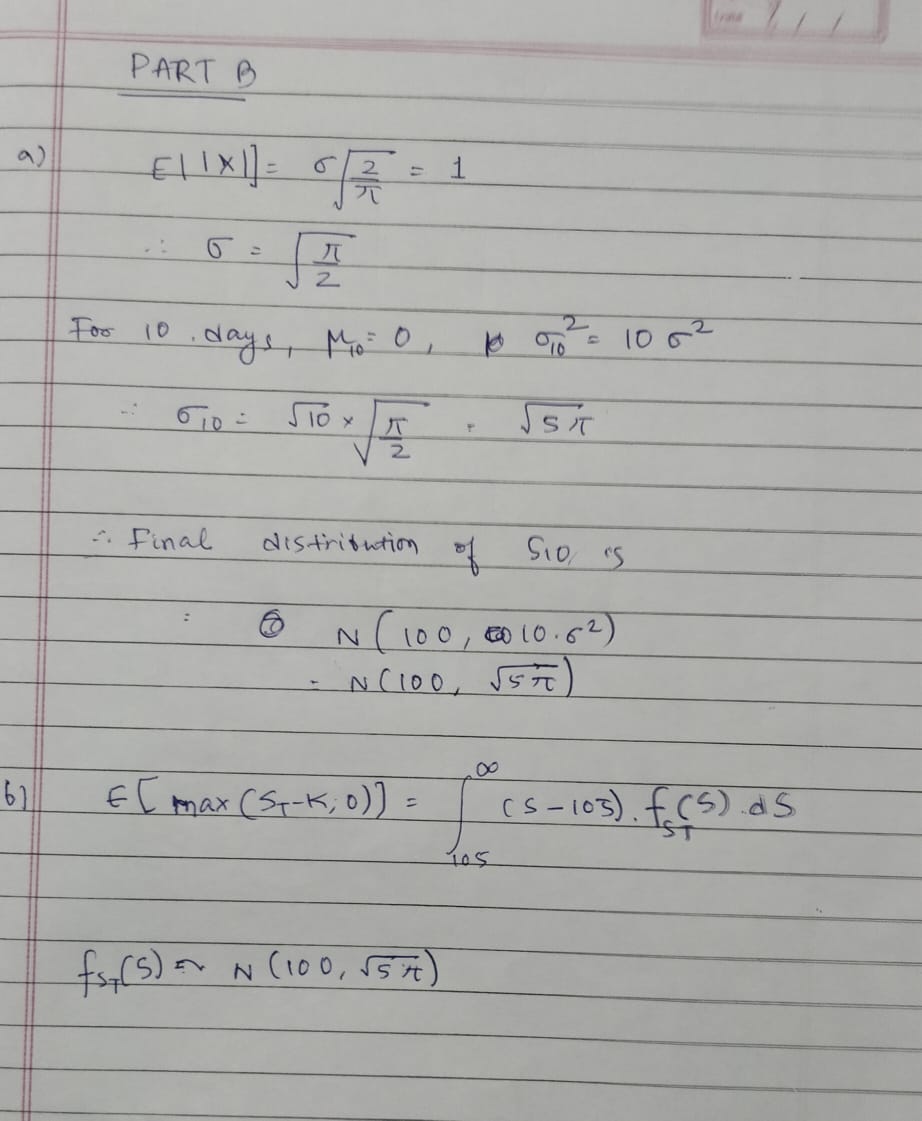 PART B
a) E[|X|] = σ√(2/π) = 1
∴ σ = √(π/2)
For 10 days, μ₁₀ = 0, σ₁₀² = 10 σ²
∴ σ₁₀ = √10 × √(π/2) = √5π
∴ Final distribution of S₁₀ is
: N(100, 10.σ²)
= N(100, √5π)
b) E[max(S_T-K, 0)] = ∫₁₀₅^∞ (S-105).f_{S_T}(S).dS
f_{S_T}(S) ~ N(100, √5π)